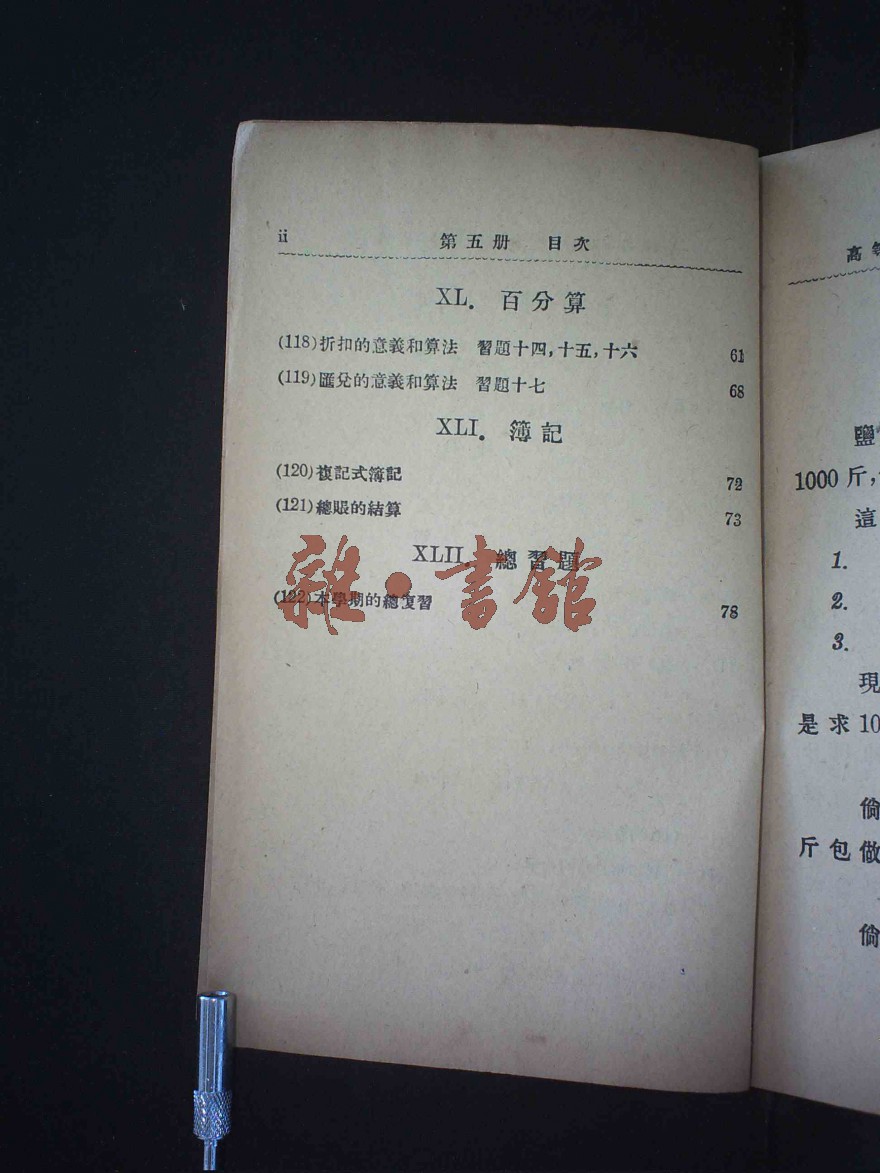 ii 第五册 目次
XL. 百分算
(118)折扣的意義和算法 習題十四,十五,十六 61
(119)匯兌的意義和算法 習題十七 68
XLI. 簿記
(120)複記式簿記 72
(121)總賬的結算 73
XLII. 總習題
(122)本學期的總復習 78
雜·書館
高等
鹽
1000 斤,
這
1.
2.
3.
現
是求10
倘
斤包做
倘